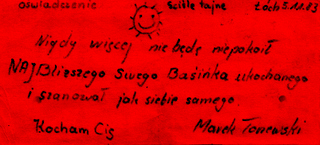 Oświadczenie Ściśle tajne Łódź 5.12.83
Nigdy więcej nie będę niepokoił
NAJBliższego Swego Baśinka ukochanego
i szanował jak siebie samego.
Kocham Cię Marek